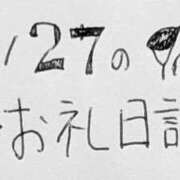 /27の
お礼日記